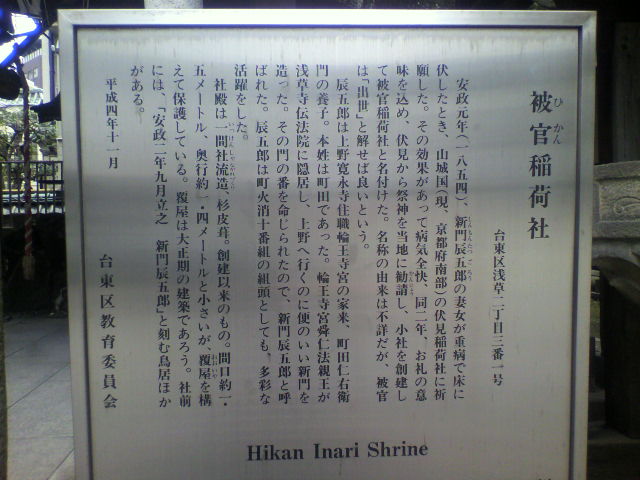 被官稲荷社
ひかん
台東区浅草二丁目三番一号
安政元年(一八五四)、新門辰五郎の妻女が重病で床に
伏したとき、山城国(現、京都府南部)の伏見稲荷社に祈
願した。その効果があって病気全快、同二年、お礼の意
味を込め、伏見から祭神を当地に勧請し、小社を創建し
て被官稲荷社と名付けた。名称の由来は不詳だが、被官
は「出世」と解せば良いという。
辰五郎は上野寛永寺住職輪王寺宮の家来、町田仁右衛
門の養子。本姓は町田であった。輪王寺宮舜仁法親王が
浅草寺伝法院に隠居し、上野へ行くのに便のいい新門を
造った。その門の番を命じられたので、新門辰五郎と呼
ばれた。辰五郎は町火消十番組の組頭としても、多彩な
活躍をした。
社殿は一間社流造、杉皮葺。創建以来のもの。間口約一・
五メートル、奥行約一・四メートルと小さいが、覆屋を構
えて保護している。覆屋は大正期の建築であろう。社前
には、「安政二年九月立之 新門辰五郎」と刻む鳥居ほか
がある。
平成四年十一月
台東区教育委員会
Hikan Inari Shrine